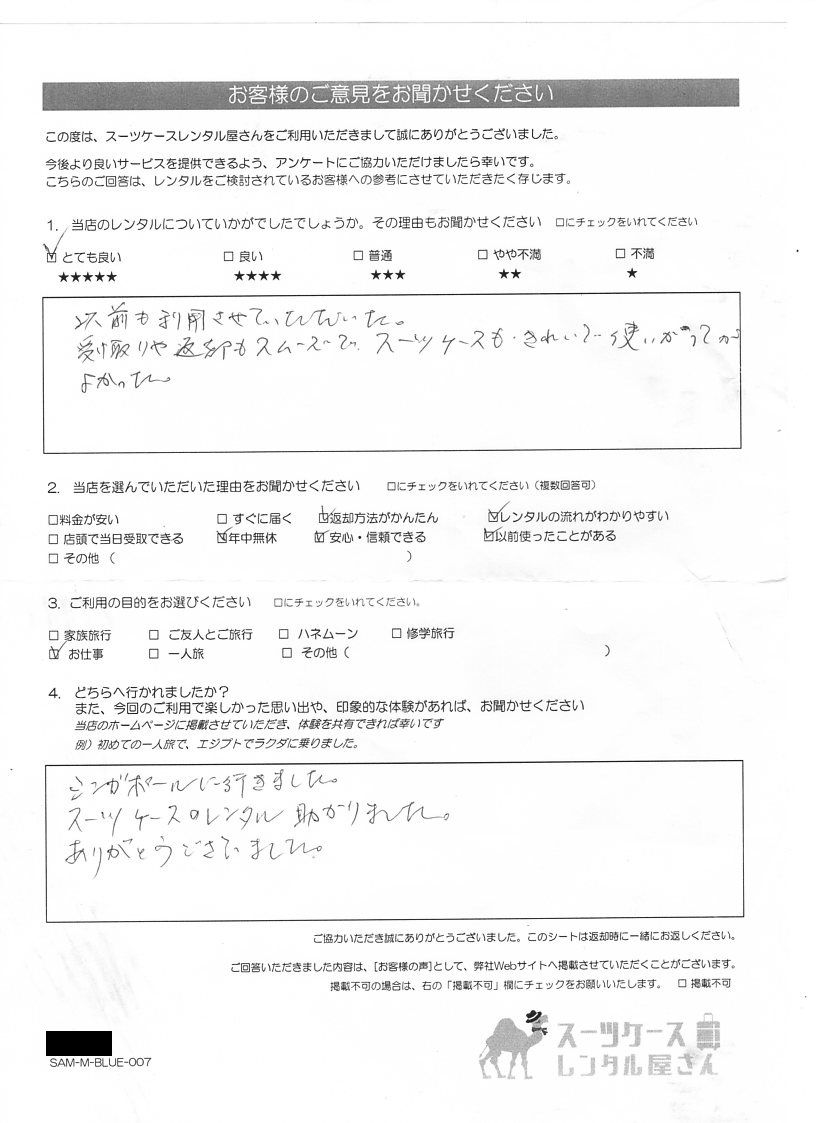 お客様のご意見をお聞かせください
この度は、スーツケースレンタル屋さんをご利用いただきまして誠にありがとうございました。
今後より良いサービスを提供できるよう、アンケートにご協力いただけましたら幸いです。
こちらのご回答は、レンタルをご検討されているお客様への参考にさせていただきたく存じます。
1. 当店のレンタルについていかがでしたでしょうか。その理由もお聞かせください □にチェックをいれてください
☑ とても良い □ 良い □ 普通 □ やや不満 □ 不満
★★★★★ ★★★★ ★★★ ★★ ★
以前も利用させていただいた。
受け取りや返却もスムーズで、スーツケースもきれいで使いがってが
よかった。
2. 当店を選んでいただいた理由をお聞かせください □にチェックをいれてください（複数回答可）
□料金が安い □ すぐに届く ☑返却方法がかんたん ☑レンタルの流れがわかりやすい
□ 店頭で当日受取できる ☑年中無休 ☑ 安心・信頼できる ☑以前使ったことがある
□ その他 （ ）
3. ご利用の目的をお選びください □にチェックをいれてください。
□ 家族旅行 □ ご友人とご旅行 □ ハネムーン □ 修学旅行
☑ お仕事 □ 一人旅 □ その他（ ）
4. どちらへ行かれましたか？
また、今回のご利用で楽しかった思い出や、印象的な体験があれば、お聞かせください
当店のホームページに掲載させていただき、体験を共有できれば幸いです
例）初めての一人旅で、エジプトでラクダに乗りました。
シンガポールに行きました。
スーツケースのレンタル助かりました。
ありがとうございました。
ご協力いただき誠にありがとうございました。このシートは返却時に一緒にお返しください。
ご回答いただきました内容は、[お客様の声]として、弊社Webサイトへ掲載させていただくことがございます。
掲載不可の場合は、右の「掲載不可」欄にチェックをお願いいたします。 □ 掲載不可
SAM-M-BLUE-007
スーツケース
レンタル屋さん